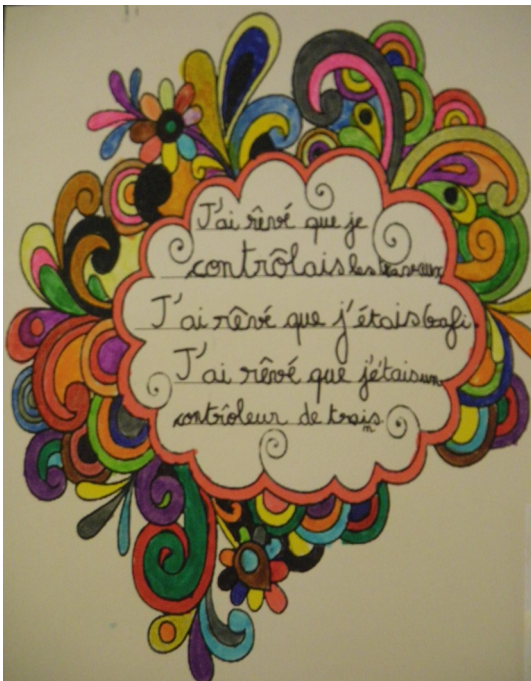 J'ai rêvé que je
contrôlais les
J'ai rêvé que j'étais
J'ai rêvé que j'étais un
contrôleur de train